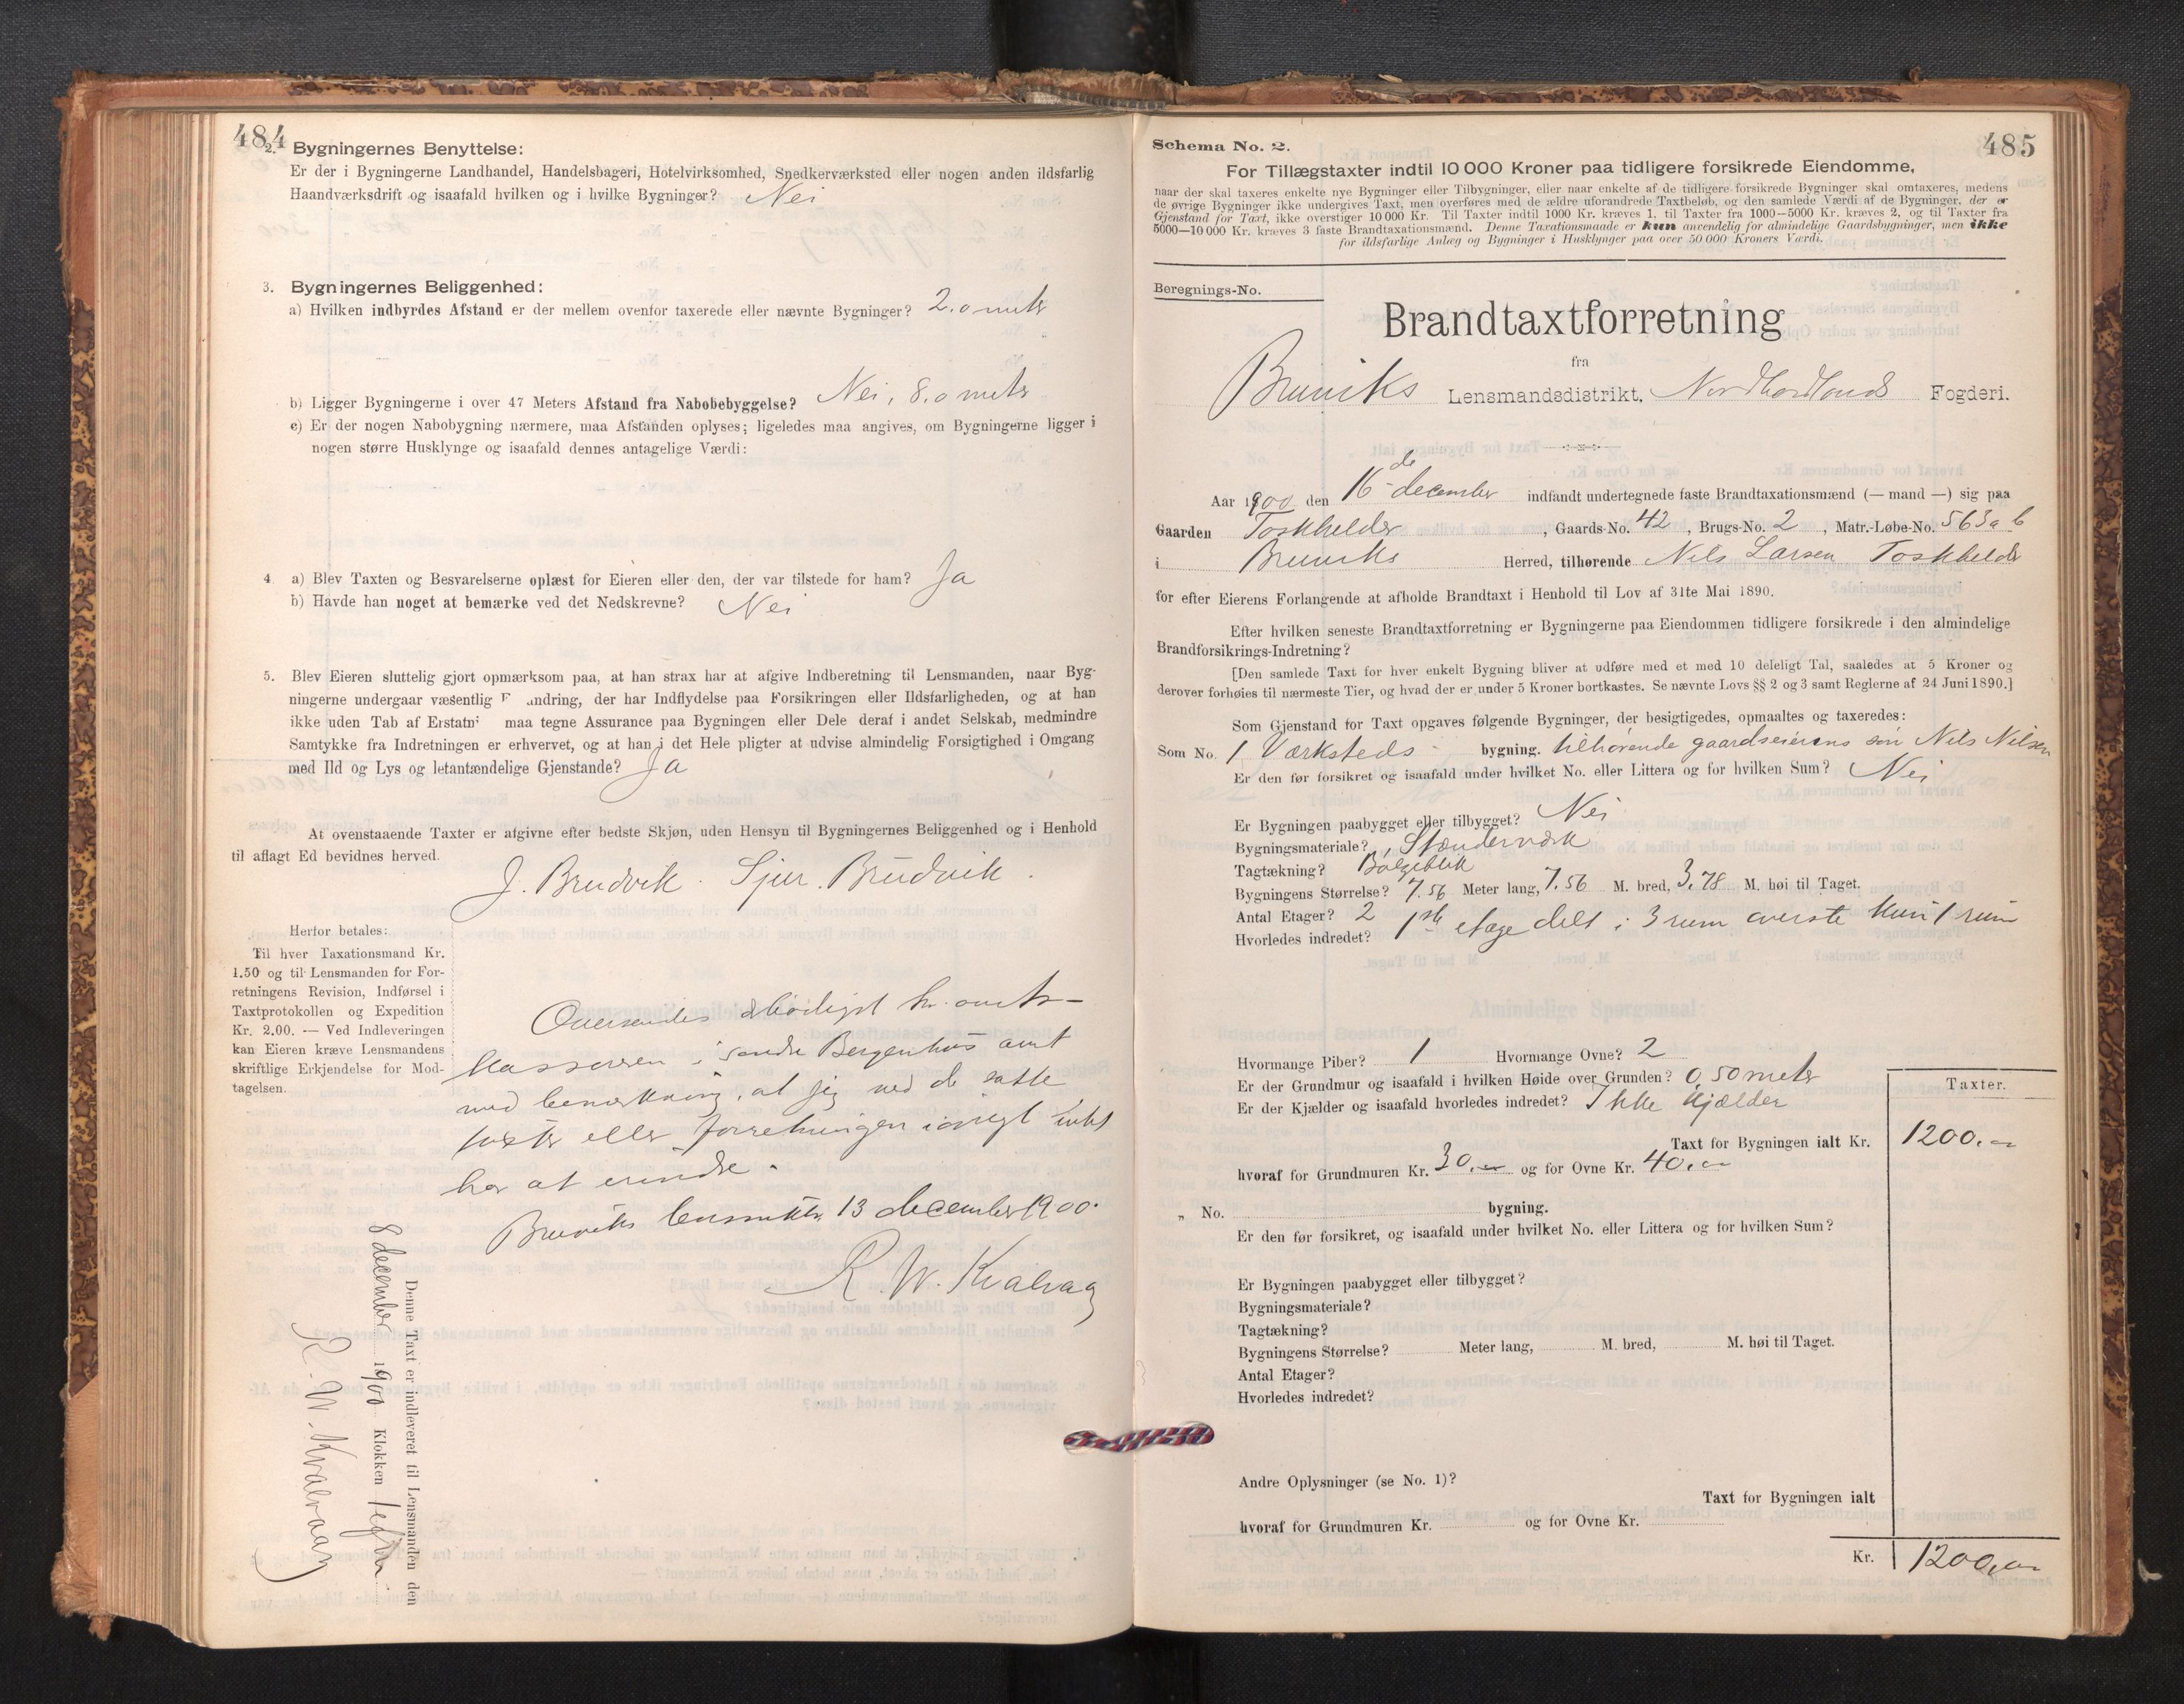 484
2. Bygningernes Benyttelse:
Er der i Bygningerne Landhandel, Handelsbageri, Hotelvirksomhed, Snedkerværksted eller nogen anden ildsfarlig
Haandværksdrift og isaafald hvilken og i hvilke Bygninger? Nei
3. Bygningernes Beliggenhed:
a) Hvilken indbyrdes Afstand er der mellem ovenfor taxerede eller nævnte Bygninger? 2.0 meter
b) Ligger Bygningerne i over 47 Meters Afstand fra Nabobebyggelse? Nei, 8.0 meter
c) Er der nogen Nabobygning nærmere, maa Afstanden oplyses; ligeledes maa angives, om Bygningerne ligger i
nogen større Husklynge og isaafald dennes antagelige Værdi:
4 a) Blev Taxten og Besvarelserne oplæst for Eieren eller den, der var tilstede for ham? Ja
b) Havde han noget at bemærke ved det Nedskrevne? Nei
5. Blev Eieren sluttelig gjort opmærksom paa, at han strax har at afgive Indberetning til Lensmanden, naar Byg-
ningerne undergaar væsentlig F andring, der har Indflydelse paa Forsikringen eller Ildsfarligheden, og at han
ikke uden Tab af Erstatn maa tegne Assurance paa Bygningen eller Dele deraf i andet Selskab, medmindre
Samtykke fra Indretningen er erhvervet, og at han i det Hele pligter at udvise almindelig Forsigtighed i Omgang
med Ild og Lys og letantændelige Gjenstande? Ja
At ovenstaaende Taxter er afgivne efter bedste Skjøn, uden Hensyn til Bygningernes Beliggenhed og i Henhold
til aflagt Ed bevidnes herved.
J. Brudvik. Sjur. Brudvik.
Herfor betales:
Til hver Taxationsmand Kr.
1.50 og til Lensmanden for For-
retningens Revision, Indførsel i
Taxtprotokollen og Expedition
Kr. 2.00. — Ved Indleveringen
kan Eieren kræve Lensmandens
skriftlige Erkjendelse for Mod-
tagelsen.
Oversendes ærbødigst hr. amts-
kasseren i søndre Bergenhus amt
med bemærkning, at jeg ved de satte
taxter eller forretningen iøvrigt intet
har at erindre.
Bruviks lensmktr. 13 december 1900.
R. W. Kvalvaag
Denne Taxt er indleveret til Lensmanden den
8 december 1900 Klokken 1 efm
R. W. Kvalvaag
Schema No. 2.
485
For Tillægstaxter indtil 10 000 Kroner paa tidligere forsikrede Eiendomme,
naar der skal taxeres enkelte nye Bygninger eller Tilbygninger, eller naar enkelte af de tidligere forsikrede Bygninger skal omtaxeres, medens
de øvrige Bygninger ikke undergives Taxt, men overføres med de ældre uforandrede Taxtbeløb, og den samlede Værdi af de Bygninger, der er
Gjenstand for Taxt, ikke overstiger 10 000 Kr. Til Taxter indtil 1000 Kr. kræves 1, til Taxter fra 1000—5000 Kr. kræves 2, og til Taxter fra
5000—10 000 Kr. kræves 3 faste Brandtaxationsmænd. Denne Taxationsmaade er kun anvendelig for almindelige Gaardsbygninger, men ikke
for ildsfarlige Anlæg og Bygninger i Husklynger paa over 50 000 Kroners Værdi.
Beregnings-No.
Brandtaxtforretning
fra
Bruviks Lensmandsdistrikt, Nordhordlands Fogderi.
Aar 1900 den 16de december indfandt undertegnede faste Brandtaxationsmænd (— mand —) sig paa
Gaarden Toskhelder, Gaards-No. 42, Brugs-No. 2, Matr.-Løbe-No. 563 a b
i Bruviks Herred, tilhørende Nils Larsen Toskhelder
for efter Eierens Forlangende at afholde Brandtaxt i Henhold til Lov af 31te Mai 1890.
Efter hvilken seneste Brandtaxtforretning er Bygningerne paa Eiendommen tidligere forsikrede i den almindelige
Brandforsikrings-Indretning?
[Den samlede Taxt for hver enkelt Bygning bliver at udføre med et med 10 deleligt Tal, saaledes at 5 Kroner og
derover forhøies til nærmeste Tier, og hvad der er under 5 Kroner bortkastes. Se nævnte Lovs §§ 2 og 3 samt Reglerne af 24 Juni 1890.]
Som Gjenstand for Taxt opgaves følgende Bygninger, der besigtigedes, opmaaltes og taxeredes:
Som No. 1 Værksteds- bygning. tilhørende gaardseierens søn Nils Nilsen
Er den før forsikret og isaafald under hvilket No. eller Littera og for hvilken Sum? Nei
Er Bygningen paabygget eller tilbygget? Nei
Bygningsmateriale? Stænderværk
Tagtækning? Bølgeblik
Bygningens Størrelse? 7.56 Meter lang, 7.56 M. bred, 3,78 M. høi til Taget.
Antal Etager? 2
Hvorledes indredet? 1ste etage delt i 3 rum øverste kun 1 rum
Hvormange Piber? 1 Hvormange Ovne? 2
Er der Grundmur og isaafald i hvilken Høide over Grunden? 0,50 meter
Er der Kjælder og isaafald hvorledes indredet? Ikke kjælder
Taxter.
Taxt for Bygningen ialt Kr. 1200.–
hvoraf for Grundmuren Kr. 30.– og for Ovne Kr. 40.–
„ No. bygning.
Er den før forsikret, og isaafald under hvilket No. eller Littera og for hvilken Sum?
Er Bygningen paabygget eller tilbygget?
Bygningsmateriale?
Tagtækning?
Bygningens Størrelse? Meter lang, M. bred, M. høi til Taget.
Antal Etager?
Hvorledes indredet?
Andre Oplysninger (se No. 1)?
Taxt for Bygningen ialt
hvoraf for Grundmuren Kr. og for Ovne Kr.
Kr. 1200,–